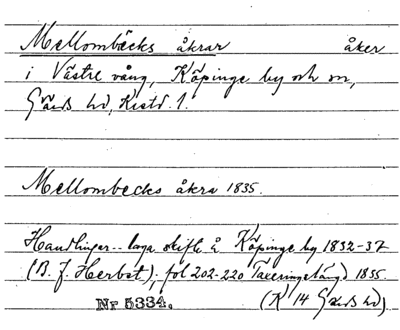 Mellombäcks åkrar åker
i Västre vång, Köpinge by och sn,
Gärds hd, Kristd. l.
Mellombecks åkra 1835.
Handlingar .. laga skifte å Köpinge by 1832-37
(B. J. Herbst); fol 202-220 Taxeringslängd 1835.
Nr 5334. (K 14 Gärds hd)